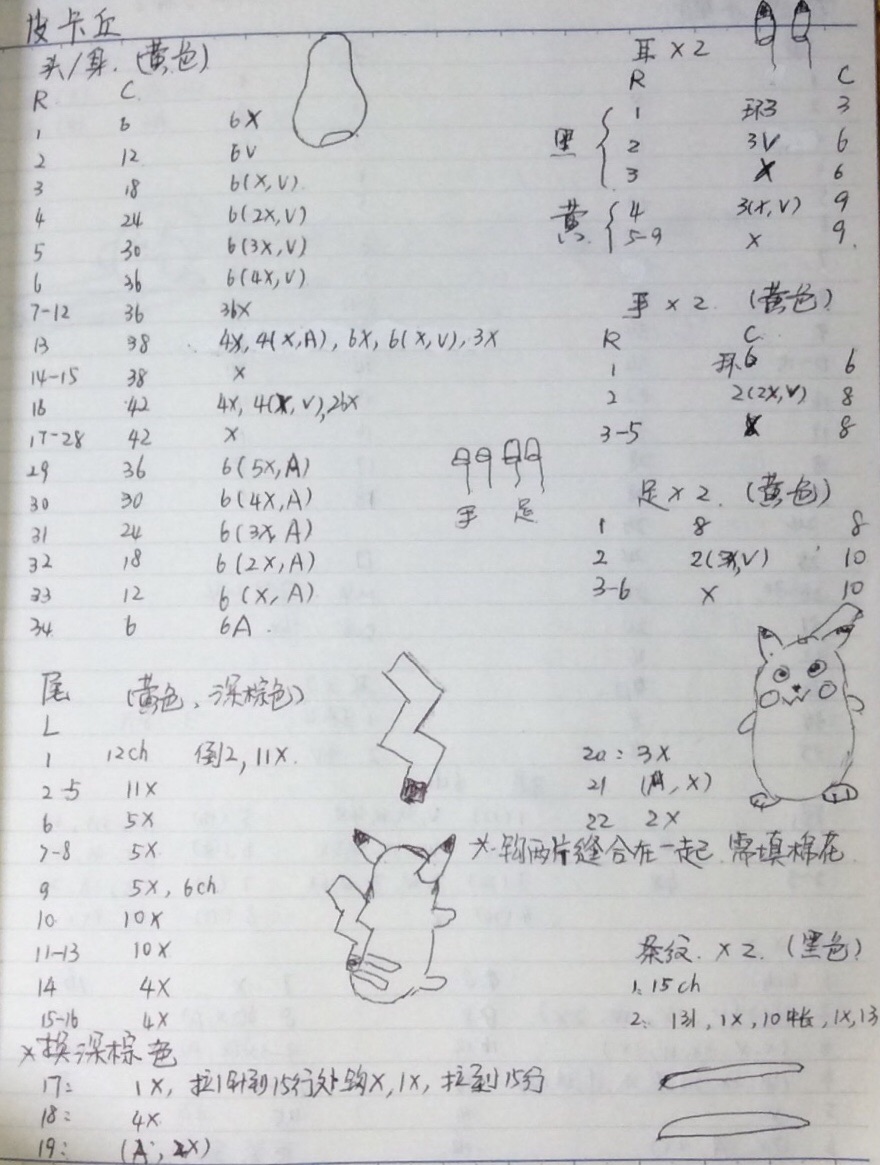 皮卡丘
头/身.（黄色）
R C.
1 6 6X
2 12 6V
3 18 6(X,V).
4 24 6(2X,V)
5 30 6(3X,V)
6 36 6(4X,V)
7-12 36 36X
13 38 4X, 4(X,A), 6X, 6(X,V), 3X
14-15 38 X
16 42 4X, 4(X,V), 26X
17-28 42 X
29 36 6(5X,A)
30 30 6(4X,A)
31 24 6(3X,A)
32 18 6(2X,A)
33 12 6(X,A)
34 6 6A.
耳 X 2
R C
黑 1 环3 3
2 3V 6
3 X 6
黄 4 3(X,V) 9
5-9 X 9.
手 X 2.（黄色）
R C.
1 环6 6
2 2(2X,V) 8
3-5 X 8
手 足
足 X 2.（黄色）
1 8 8
2 2(3X,V) 10
3-6 X 10
尾（黄色、深棕色）
L
1 12ch 倒2, 11X.
2-5 11X
6 5X
7-8 5X
9 5X, 6ch
10 10X
11-13 10X
14 4X
15-16 4X
X换深棕色
17: 1X, 拉1针到15行处钩X, 1X, 拉到15行
18: 4X
19: (A, 2X)
20: 3X
21 (A, X)
22 2X
X.钩两片缝合在一起.需填棉花.
条纹. X 2.（黑色）
1: 15ch
2: 1引, 1X, 10中长, 1X, 1引